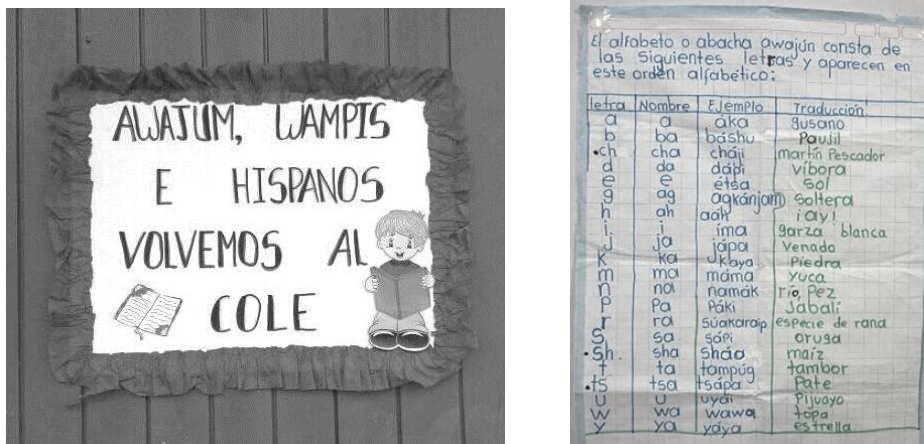 AWAJUM, WAMPIS
E HISPANOS
VOLVEMOS AL
COLE
El alfabeto o abacha awajún consta de
las siguientes letras y aparecen en
este orden alfabético:
letra Nombre EJemplo Traducción
a a áka gusano
b ba báshu Paujil
ch cha cháji martín Pescador
d da dápi víbora
e e étsa Sol
g ag agkánjam soltera
h ah aáh ¡ay!
i i íma garza blanca
J ja jápa Venado
K Ka Kaya Piedra
m ma máma yuca
n na namák río, Pez
P Pa Páki Jabalí
r ra súakaraip especie de rana
S sa sápi oruga
Sh. sha sháa maíz
t ta tampúg tambor
ts tsa tsápa Pate
u u uyái Pijuayo
w wa wawa topa
y ya yáya estrella